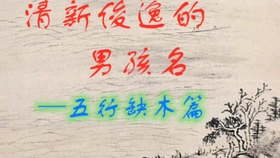 清新俊逸的
男孩名
—五行缺木篇